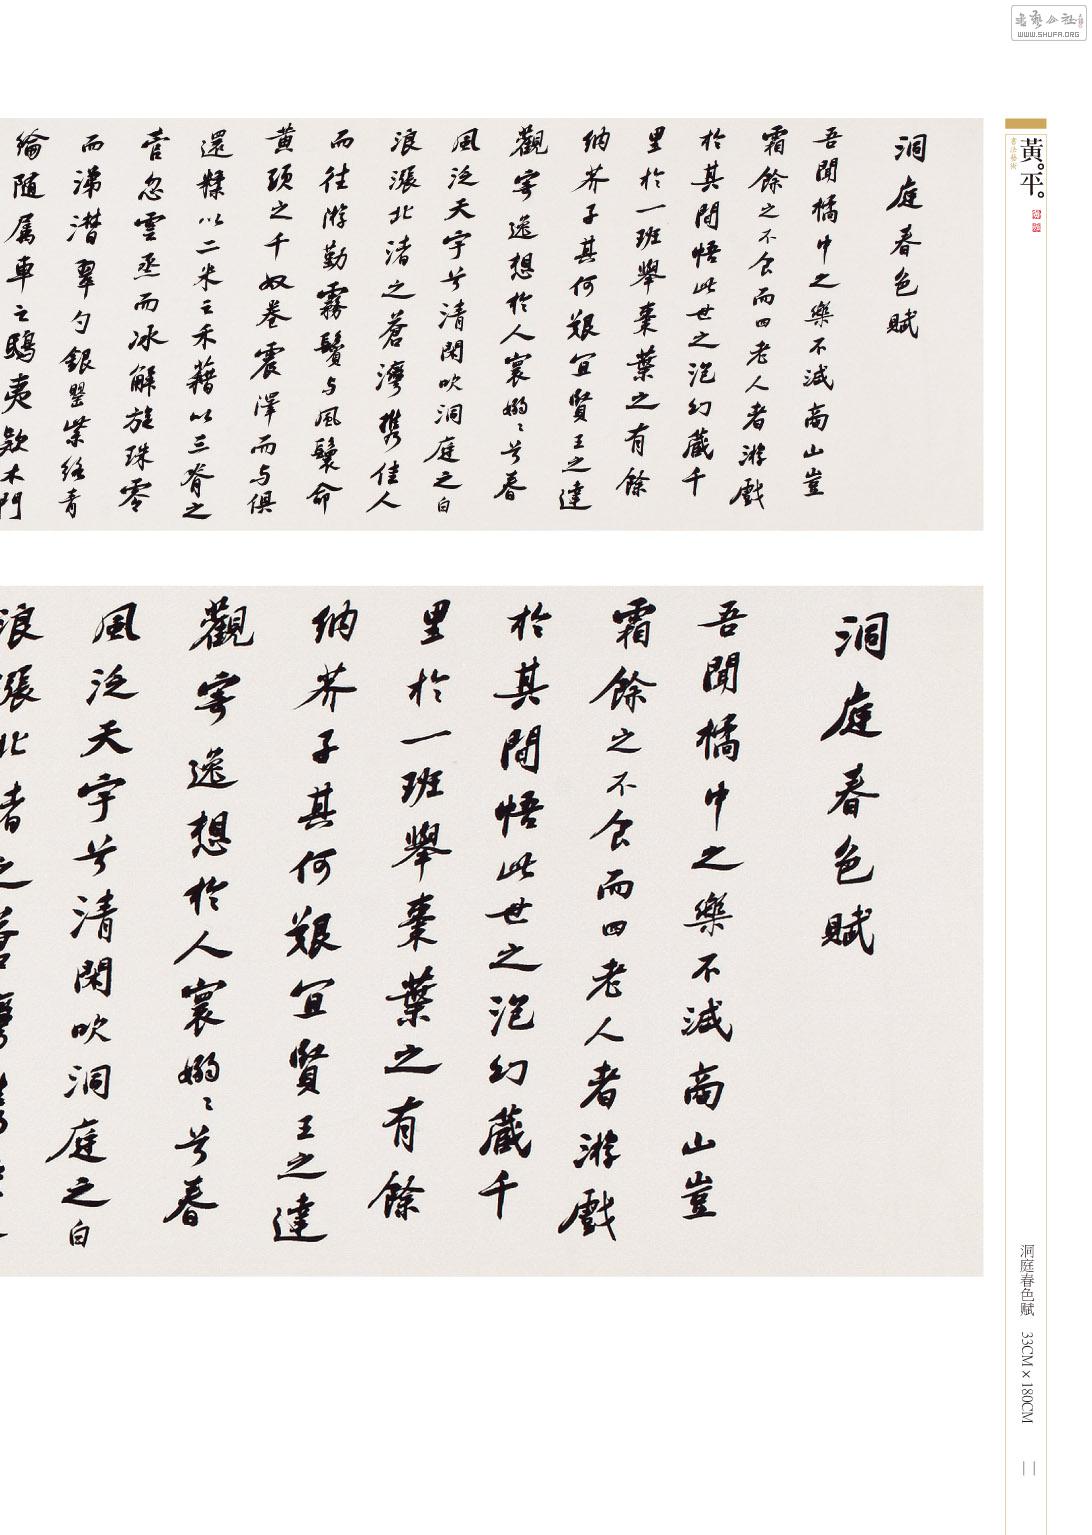 書藝公社
WWW.SHUFA.ORG
黃平
書法藝術
洞庭春色賦
吾聞橘中之樂不減商山豈
霜餘之不食而四老人者游戲
於其間悟此世之泡幻藏千
里於一班舉棗葉之有餘
納芥子其何艱宜賢王之達
觀寄逸想於人寰嫋〻兮春
風泛天宇兮清閑吹洞庭之白
浪漲北渚之蒼灣攜佳人
而往游勤霧鬢与風鬟命
黃頭之千奴卷震澤而与俱
還糅以二米之禾藉以三脊之
菅忽雲烝而冰解旋珠零
而涕潸翠勺銀罌紫絡青
綸隨属車之鴟夷款木門
洞庭春色賦
吾聞橘中之樂不減商山豈
霜餘之不食而四老人者游戲
於其間悟此世之泡幻藏千
里於一班舉棗葉之有餘
納芥子其何艱宜賢王之達
觀寄逸想於人寰嫋〻兮春
風泛天宇兮清閑吹洞庭之白
浪漲北
洞庭春色赋 33CM×180CM
11